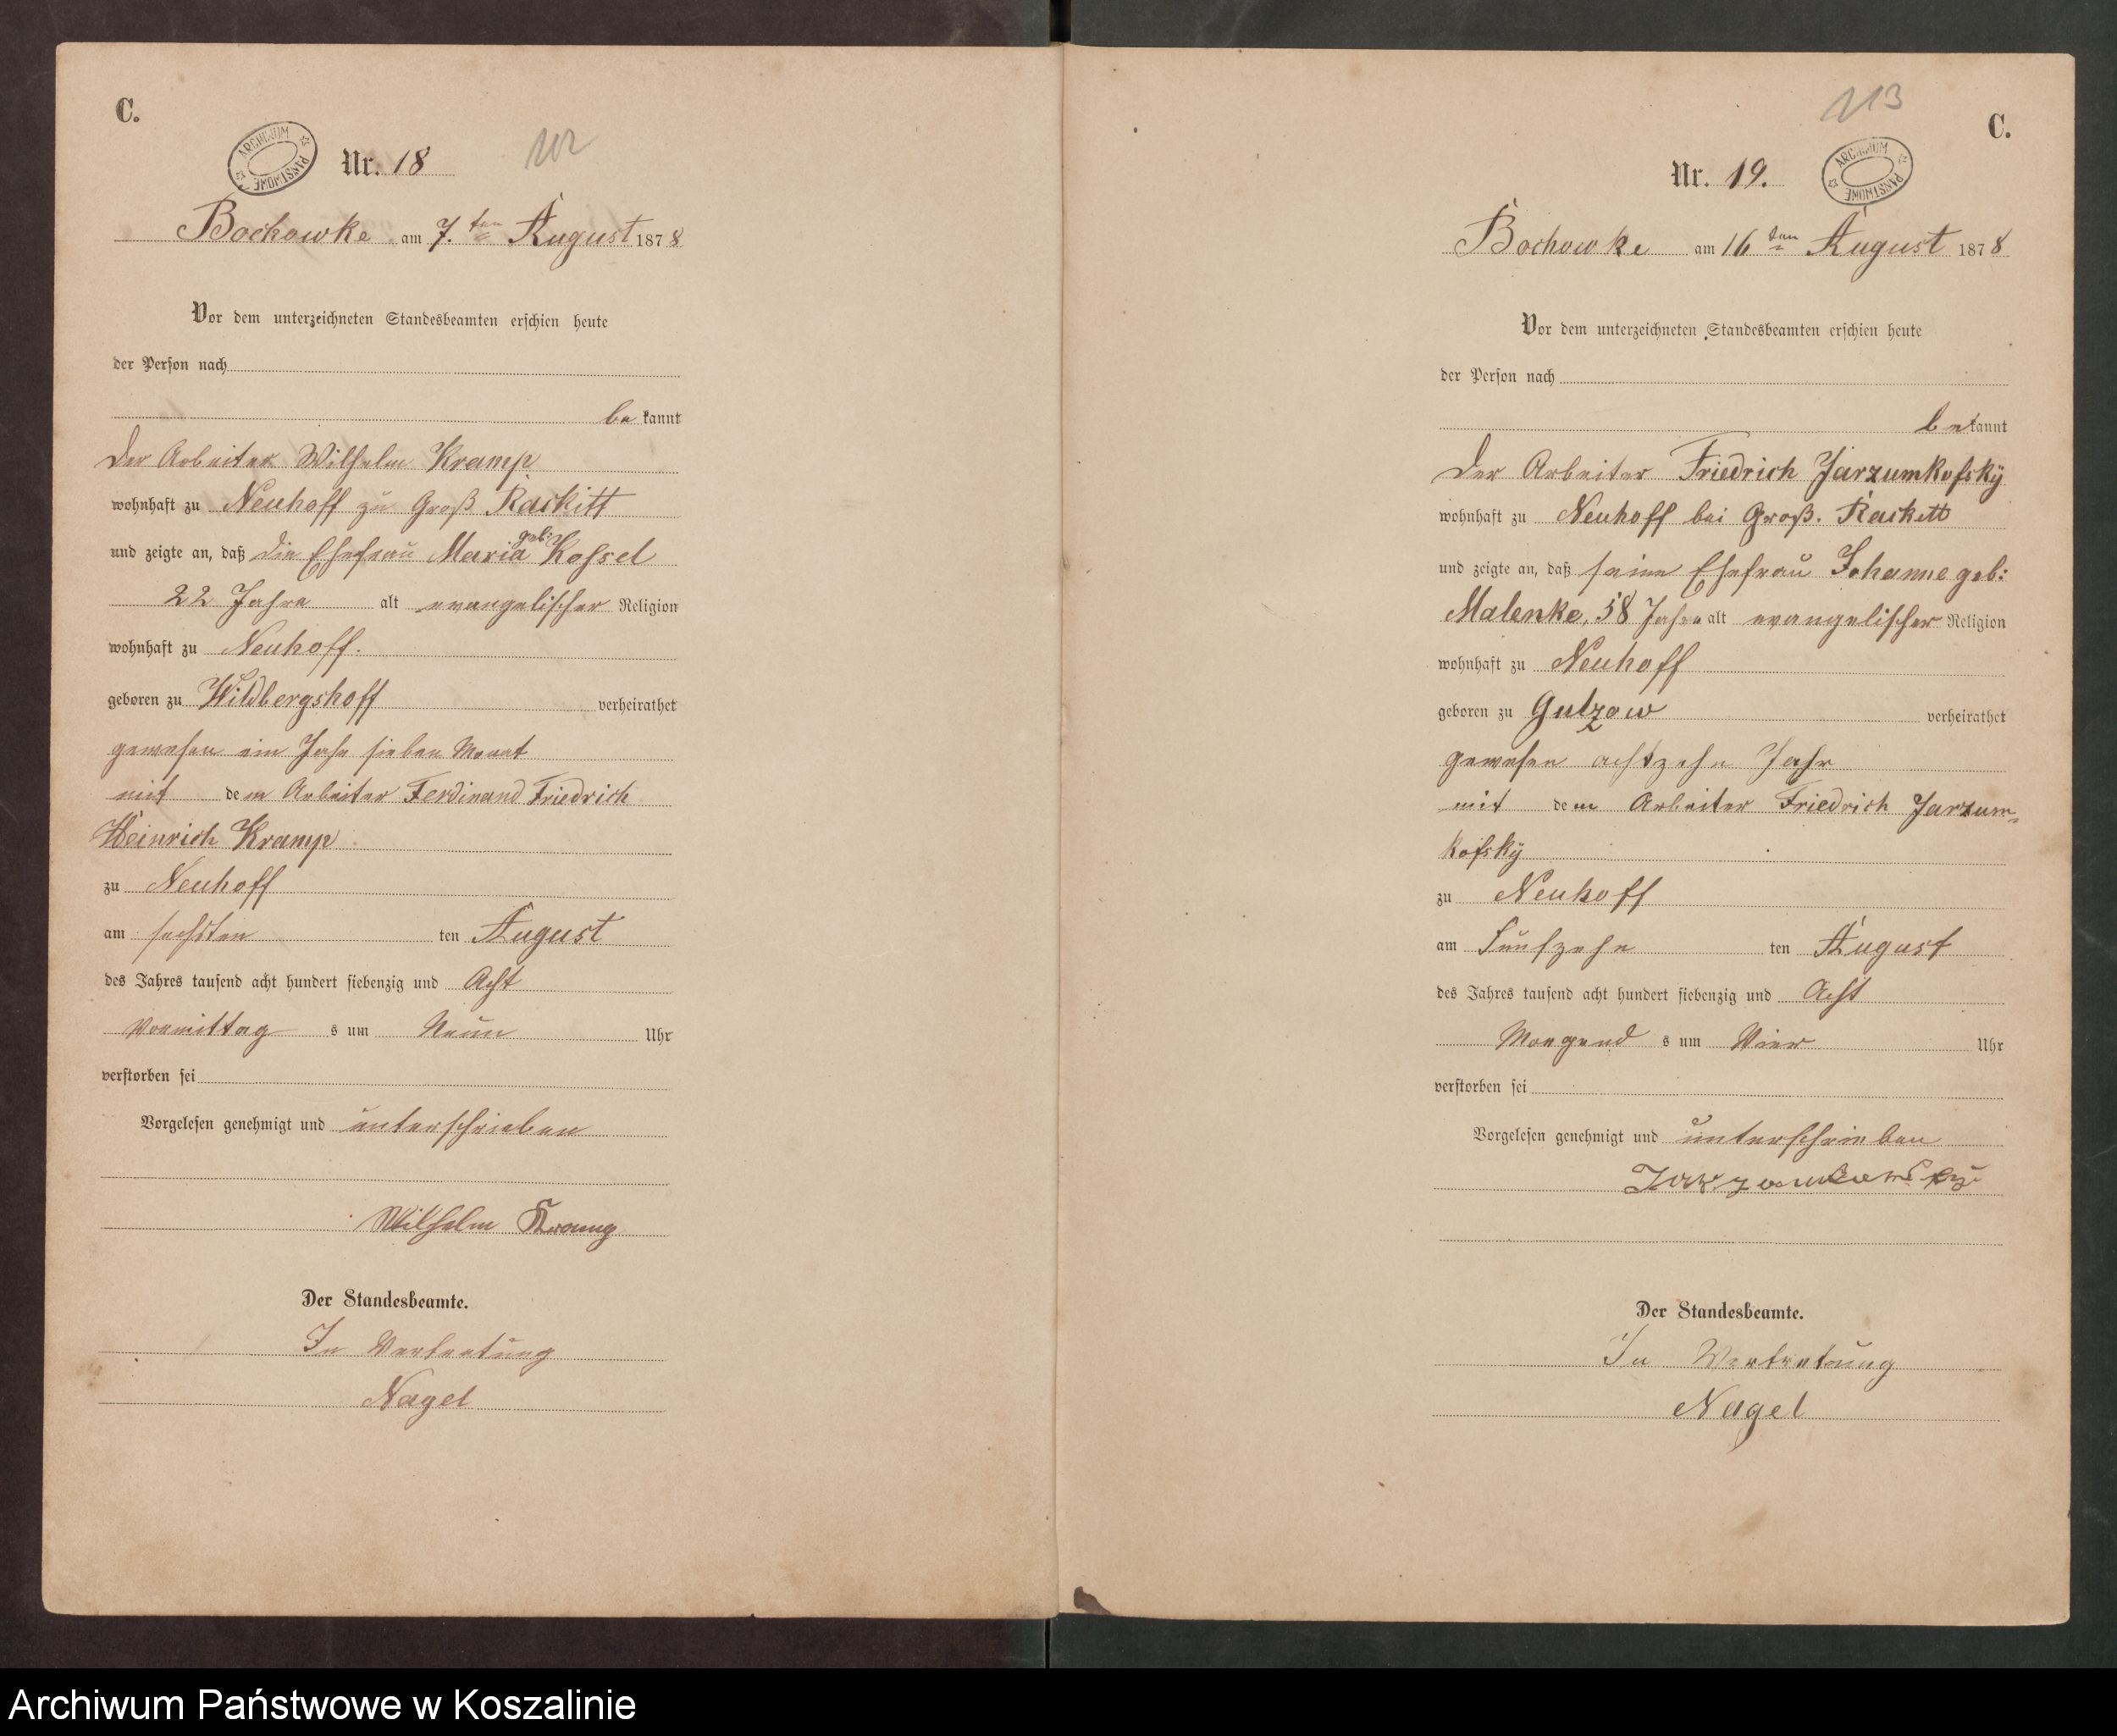 C.
ARCHIWUM PAŃSTWOWE
Nr. 18
Bochowke am 7.ten August 1878
Vor dem unterzeichneten Standesbeamten erschien heute
der Person nach
be kannt
der Arbeiter Wilhelm Kramp
wohnhaft zu Neuhoff zu Groß Rackitt
und zeigte an, daß die Ehefrau Maria geb: Kossel
22 Jahre alt evangelischer Religion
wohnhaft zu Neuhoff.
geboren zu Wildbergshoff verheirathet
gewesen ein Jahr sieben Monat
mit dem Arbeiter Ferdinand Friedrich
Heinrich Kramp
zu Neuhoff
am sechsten ten August
des Jahres tausend acht hundert siebenzig und Acht
Vormittag s um Neun Uhr
verstorben sei
Vorgelesen genehmigt und unterschrieben
Wilhelm
Der Standesbeamte.
In Vertretung
Nagel
113
C.
Nr. 19.
ARCHIWUM PAŃSTWOWE
Bochowke am 16ten August 1878
Vor dem unterzeichneten Standesbeamten erschien heute
der Person nach
bekannt
der Arbeiter Friedrich Jarzumkofsky
wohnhaft zu Neuhoff bei Groß. Rackett
und zeigte an, daß seine Ehefrau Johanne geb:
Malenke, 58 Jahre alt evangelischer Religion
wohnhaft zu Neuhoff
geboren zu Gutzow verheirathet
gewesen achtzehn Jahr
mit dem Arbeiter Friedrich Jarzum-
kofsky
zu Neuhoff
am Fünfzehn ten August
des Jahres tausend acht hundert siebenzig und Acht
Morgend s um Vier Uhr
verstorben sei
Vorgelesen genehmigt und unterschrieben
Der Standesbeamte.
In Vertretung
Nagel
Archiwum Państwowe w Koszalinie